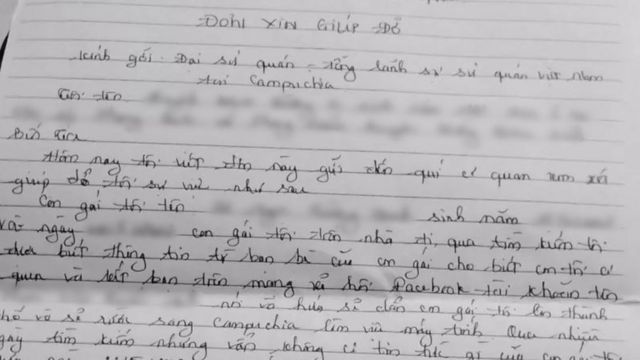 ĐƠN XIN GIÚP ĐỠ
Kính gởi: Đại sứ quán - tổng lãnh sự sứ quán việt nam
tại Campuchia
Tôi tên
Hôm nay tôi viết đơn này gửi đến quí cơ quan xem xét
giúp đỡ tôi sự việc như sau
Con gái tôi tên sinh năm
Và ngày con gái tôi trốn nhà đi, qua tìm kiếm tôi
được biết thông tin từ bạn bè của con gái cho biết con tôi có
quen và kết bạn trên mạng xã hội Facebook tài khoản tên
nó và hứa sẽ dẫn con gái tôi lên thành
phố và sẽ rước sang Campuchia làm việc máy tính. Qua nhiều
ngày tìm kiếm nhưng vẫn không có tin tức gì của con gái tôi